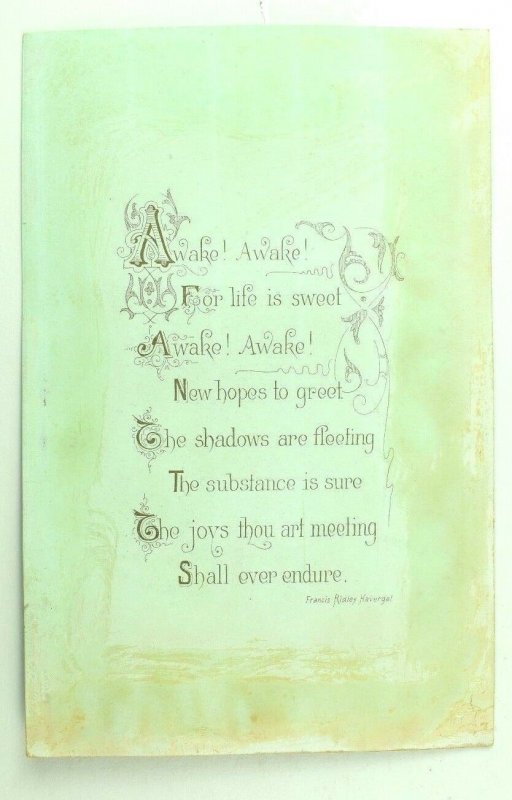 Awake! Awake!
For life is sweet
Awake! Awake!
New hopes to greet
The shadows are fleeting
The substance is sure
The joys thou art meeting
Shall ever endure.
Francis Ridley Havergal